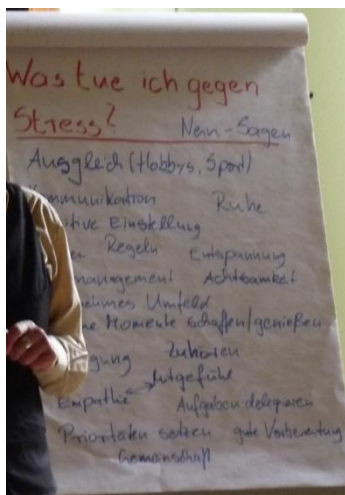 Was tue ich gegen
Stress?
Nein-Sagen
Ausgleich (Hobbys, Sport)
Kommunikation Ruhe
Einstellung
Regeln Entspannung
management Achtsamkeit
Umfeld
Momente schaffen/genießen
Zuhören
Mitgefühl
Empathie
Aufgaben delegieren
Prioritäten setzen gute Vorbereitung
Gemeinschaft